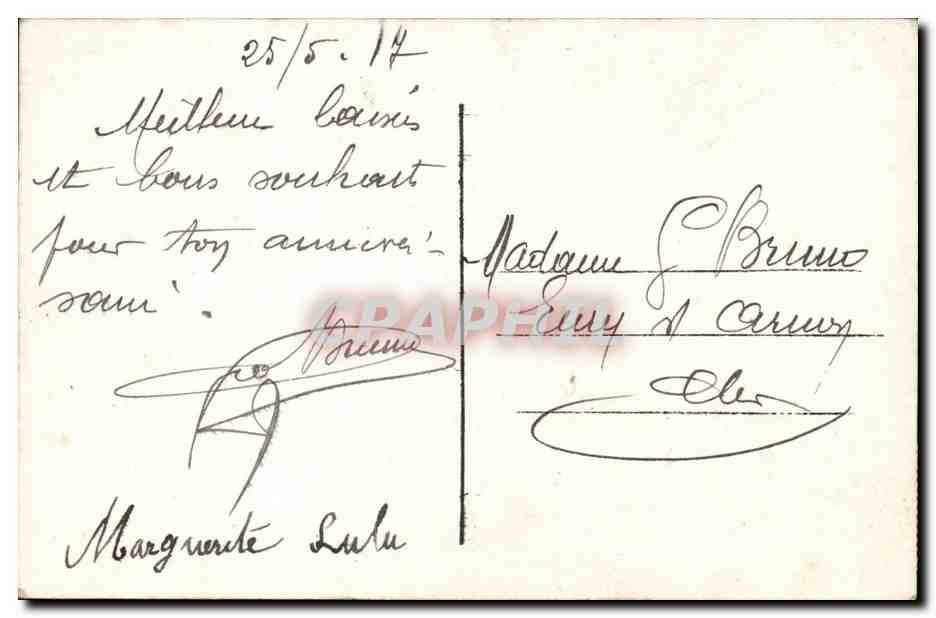 25/5. 17
Meilleur baisés
et bons souhaits
pour ton anniver-
sair.
Bruno
Marguerite Lulu
Madame G Bruno
CRAPHIL